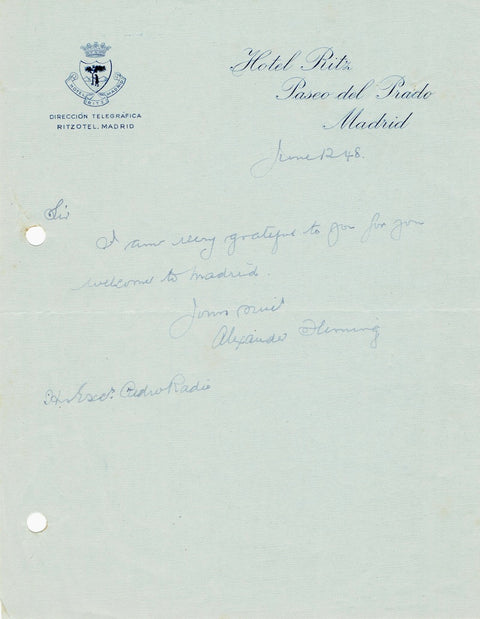 HOTEL RITZ MADRID
DIRECCIÓN TELEGRÁFICA
RITZOTEL. MADRID
Hotel Ritz
Paseo del Prado
Madrid
June 12 48.
Sir
I am very grateful to you for your
welcome to Madrid.
Yours
Alexander Fleming
Pedro Radio